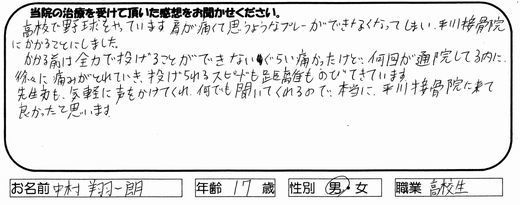 当院の治療を受けて頂いた感想をお聞かせください。
高校で野球をやっています 肩が痛くて思うようなプレーができなくなってしまい、平川接骨院
にかかることにしました。
かかる前は全力で投げることができないぐらい痛かったけど、何回か通院してる内に、
徐々に痛みがとれていき、投げられるスピードも距離もものびてきています。
先生方も、気軽に声をかけてくれ、何でも聞いてくれるので、本当に、平川接骨院に来て
良かったと思います
お名前 中村 翔一朗 年齢 17 歳 性別 男・女 職業 高校生